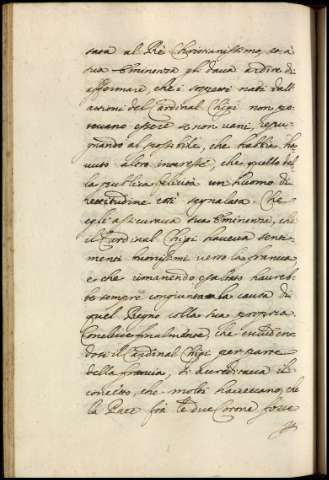 sara al Rè Christianissimo, et a
sua Eminenza gli dava ardire di
affermare, che i sospetti nati dall'
attioni del Cardinal Chigi non po-
tevano essere se non vani, repu-
gnando al possibile, che habbia ha-
vuto altro interesse, che quello del-
la publica felicità un huomo di
rettitudine così segnalata. Che
egli assicurava sua Eminenza, che
il Cardinal Chigi haveva senti-
menti buonissimi verso la francia,
e che rimanendo esaltato haureb-
be sempre congiunta la causa di
quel Regno colla sua propria.
Concluse finalmente, che escluden-
dosi il Cardinal Chigi per parte
della francia, si accreditava il
concetto, che molti havevano, che
la Pace frà le due Corone fosse